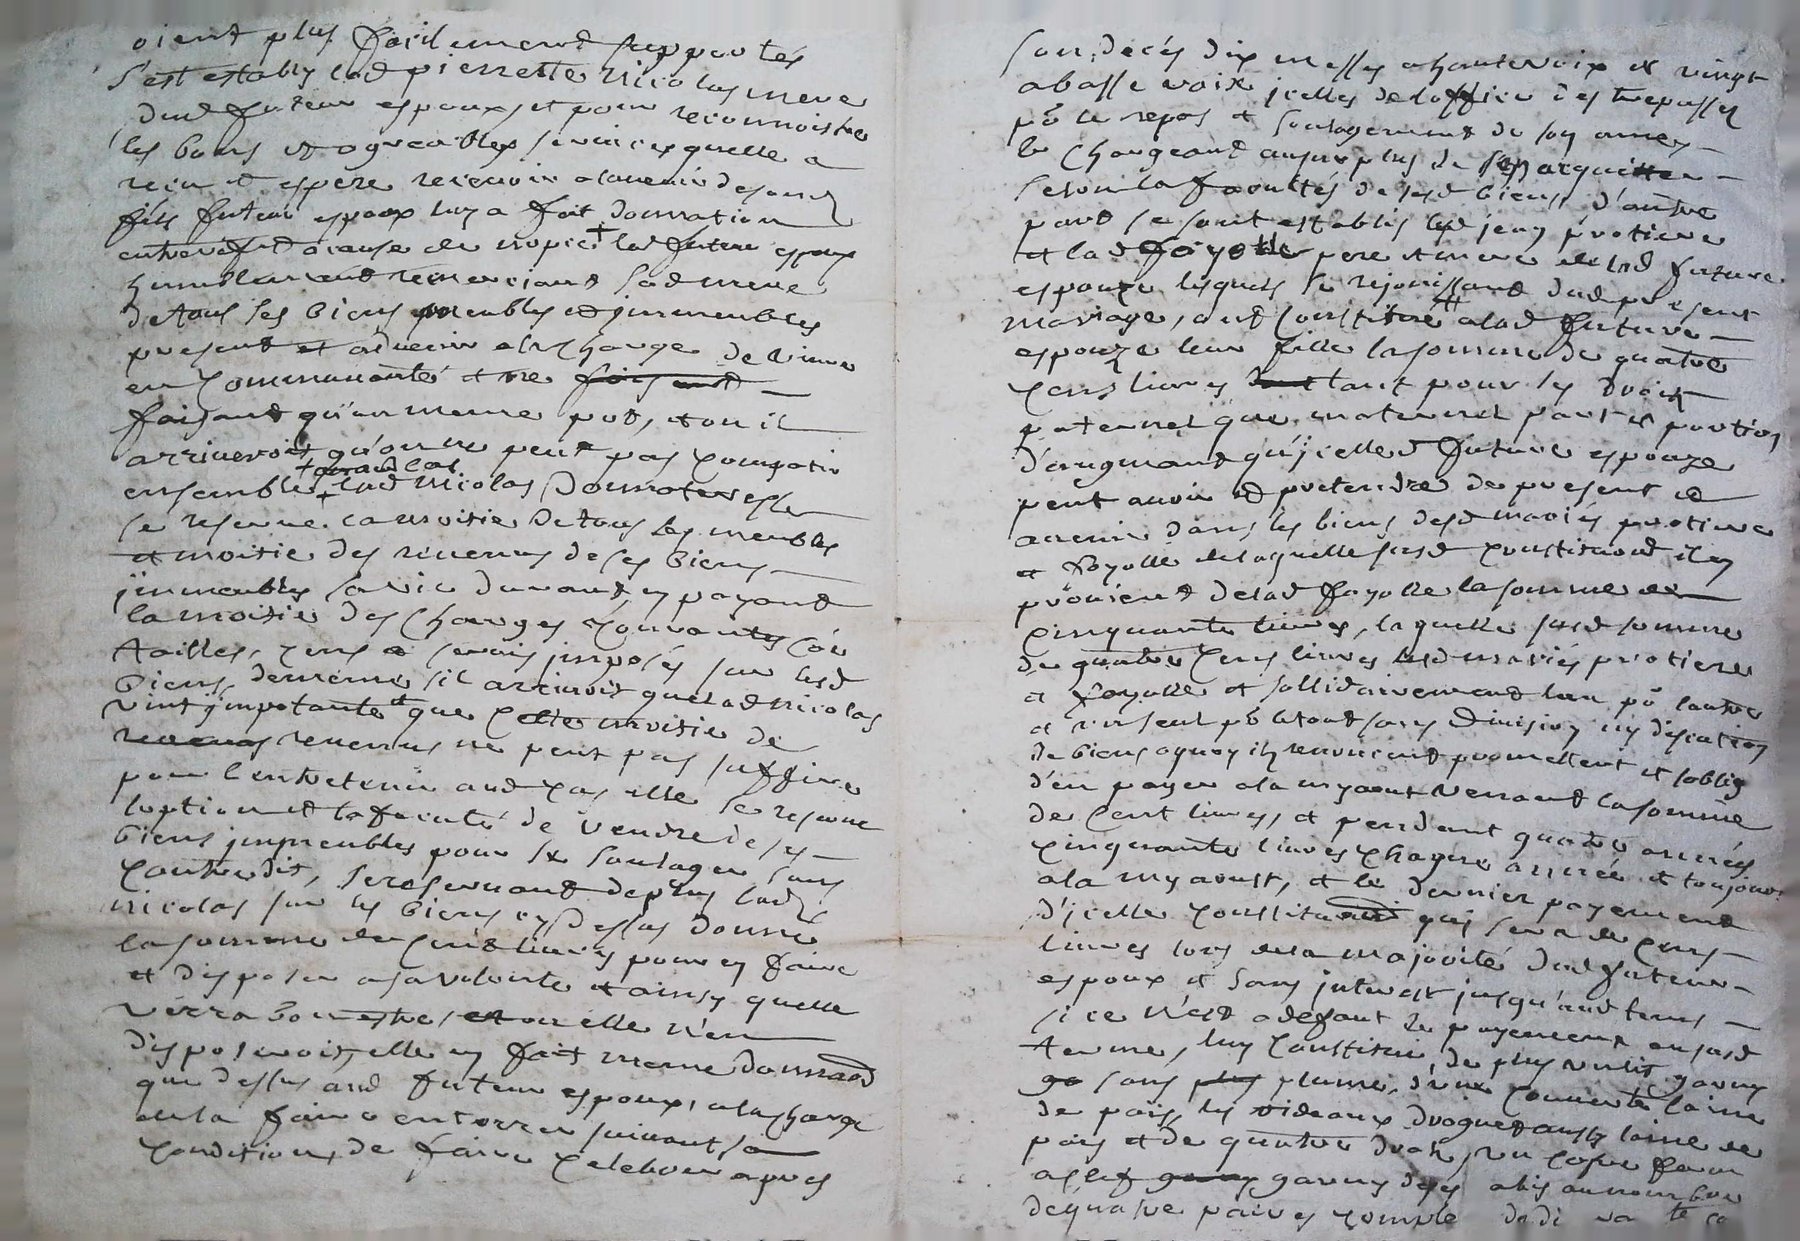 oient plus facilement supportés
s'est estably lad pierrette Nicolas mere
dud futeur espoux et pour reconnoistre
les bons et agreables services quelle a
recu et espere recevoir a lavenir desond
fils futeur espoux luy a fait donnation
entrevifs et
lad futeur espoux
humblement remerciant sad mere
de tous ses biens meubles et jmmeubles
present et advenir a la charge de vivre
en communauté et ne
faisant qu'un meme pot, et ou il
arriveroit qu'on ne peut pas compatir
ensemble lad Nicolas donnatresse
se reserve la moitie de tous les meubles
et moitie des revenus de ses biens
jmmeubles sa vie durant, en payant
la moitie des charges courantes
tailles, cens a jmposés sur lesd
biens, dememe s'il arrivoit que lad Nicolas
vint jmpotante que cette moitie de
revenus ne peut pas suffire
pour l'entretenir aud cas elle se reserve
loption et la faculté de vendre de ses
biens jmmeubles pour se soulager sans
contredit, se reservant de plus lad
nicolas sur les biens cy dessus donné
la somme de cent livres pour en faire
et disposer a sa volonté et ainsy quelle
verra bon estre, et ou elle n'en
disposeroit, elle en fait meme donnaon
que dessus aud futeur espoux, a la charge
de la faire enterrer suivant sa
condition, de faire celebrer apres
son decés dix messes a haute voix et vingt
a basse voix jcelles de loffice des trepassés
põ le repos et soulagement de son ame
le chargeant au surplus de sen acquitter
selon la facultés de sesd biens, d'autre
part se sont establis led jean protiere
et lad foyolle pere et mere delad future
espouze lesquels se rejouissant dud present
mariage, ont constitué a lad future
espouze leur fille la somme de quatre
cens livres tant pour les droits
paternel que maternel part et portion
d'augmant qu'jcelled future espouze
peut avoir et pretendre de present et
avenir dans les biens desd mariés protiere
et foyolle de laquelle susd constitution il en
provient delad foyolle la somme de
cinquante livres, laquelle susd somme
de quatre cens livres lesd mariés protiere
et foyolle et sollidairement lun põ lautre
et un seul põ letout sans division ny discution
de biens a quoy ils renoncent promettent et soblig
d'en payer a la my aout venant la somme
de cent livres, et pendant quatre années
cinquante livres chaque année et toujours
a la my aoust, et le dernier payement
d'jcelle constitution qui sera de cens
livres lors de la majorité dud futeur
espoux et sans jnterest jusqu'aud tems
si ce n'est a defaut de payement ausd
terme, luy constitue de plus un lit garny
sans plume, d'une couverte laine
de pais, les rideaux droguet aussy laine de
pais et de quatre draps, un cofre ferm
a clef garny de ses abis au nombre
de quatre paires